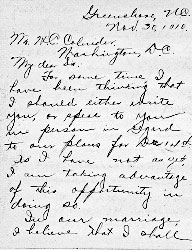 Greensboro, N.C.
Nov. 30, 1910.
Mr. W. C.
Washington, D.C.
My dear Sir:
For some time I
have been thinking that
I should either write
you, or speak to you
in person in regard
to our plans for
As I have not as yet,
I am taking advantage
of this opportunity in
doing so.
In our marriage,
I believe that I shall